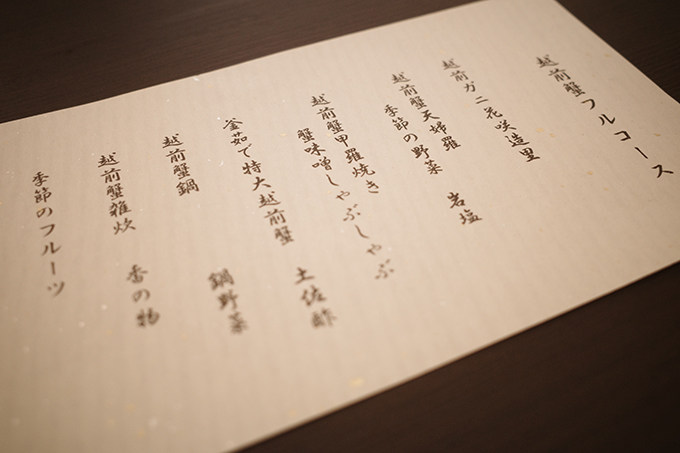 越前蟹フルコース
越前ガニ花咲造里
越前蟹天婦羅
季節の野菜 岩塩
越前蟹甲羅焼き
蟹味噌しゃぶしゃぶ
釜茹で特大越前蟹 土佐酢
越前蟹鍋 鍋野菜
越前蟹雑炊 香の物
季節のフルーツ